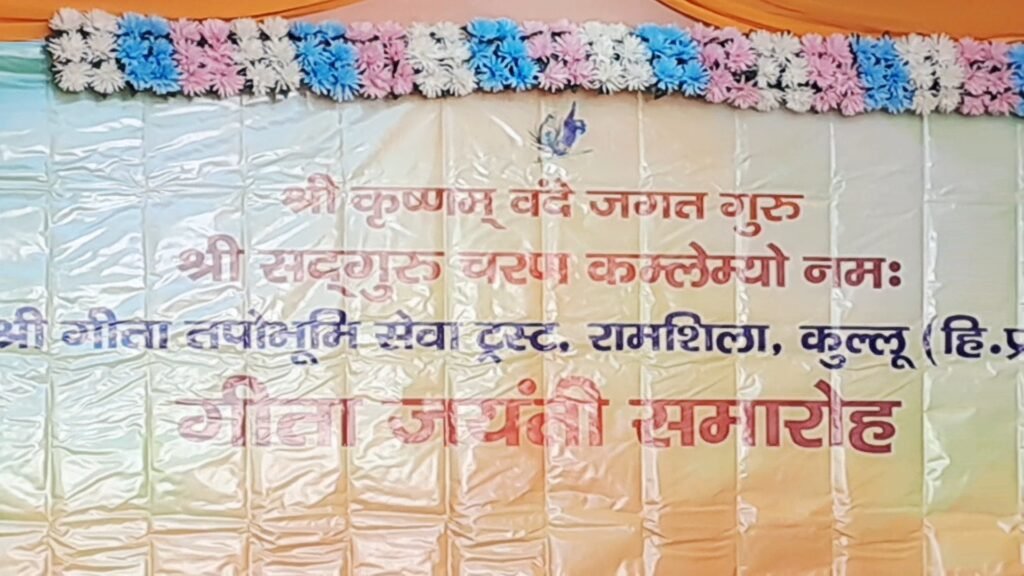 श्री कृष्णम् वंदे जगत गुरु
श्री सद्गुरु चरण कम्लेम्यो नमः
श्री गीता तपोभूमि सेवा ट्रस्ट, रामशिला, कुल्लू (हि.प्र
गीता जयंती समारोह